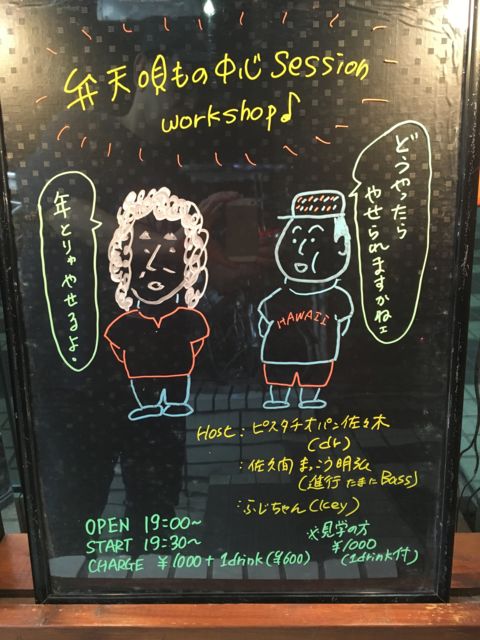 弁天唄もの中心 Session
workshop♪
どうやったら
やせられますかねェ
年とりゃやせるよ。
HAWAII
Host : ピスタチオパン佐々木
(dr)
: 佐久間まっこう明弘
(進行 たまにBass)
: ふじちゃん(key)
OPEN 19:00~
START 19:30~
CHARGE ¥1000 + 1drink(¥600)
※見学の方
¥1000
(1drink付)